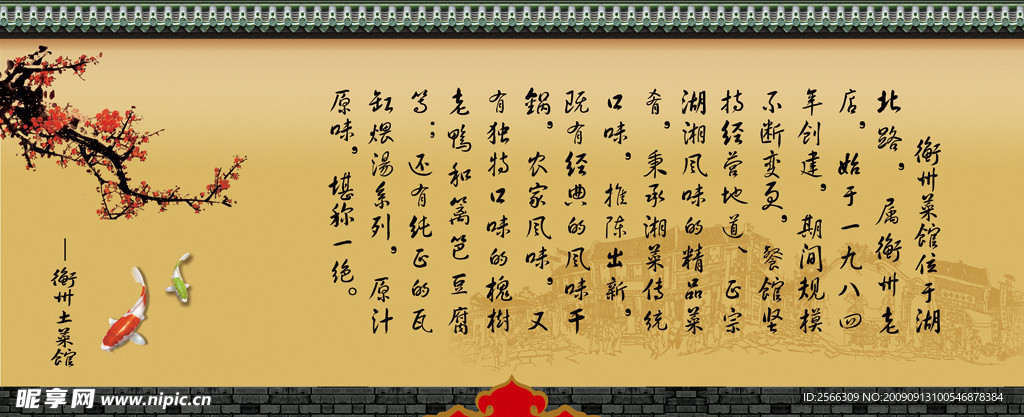 衡州菜馆位于湖
北路，属衡州老
店，始于一九八四
年创建，期间规模
不断变更，餐馆坚
持经营地道、正宗
湖湘风味的精品菜
肴，秉承湘菜传统
口味，推陈出新，
既有经典的风味干
锅，农家风味，又
有独特口味的槐树
老鸭和篱笆豆腐
等；还有纯正的瓦
缸煨汤系列，原汁
原味，堪称一绝。
—衡州土菜馆
昵享网 www.nipic.cn
ID:2566309 NO:20090913100546878384